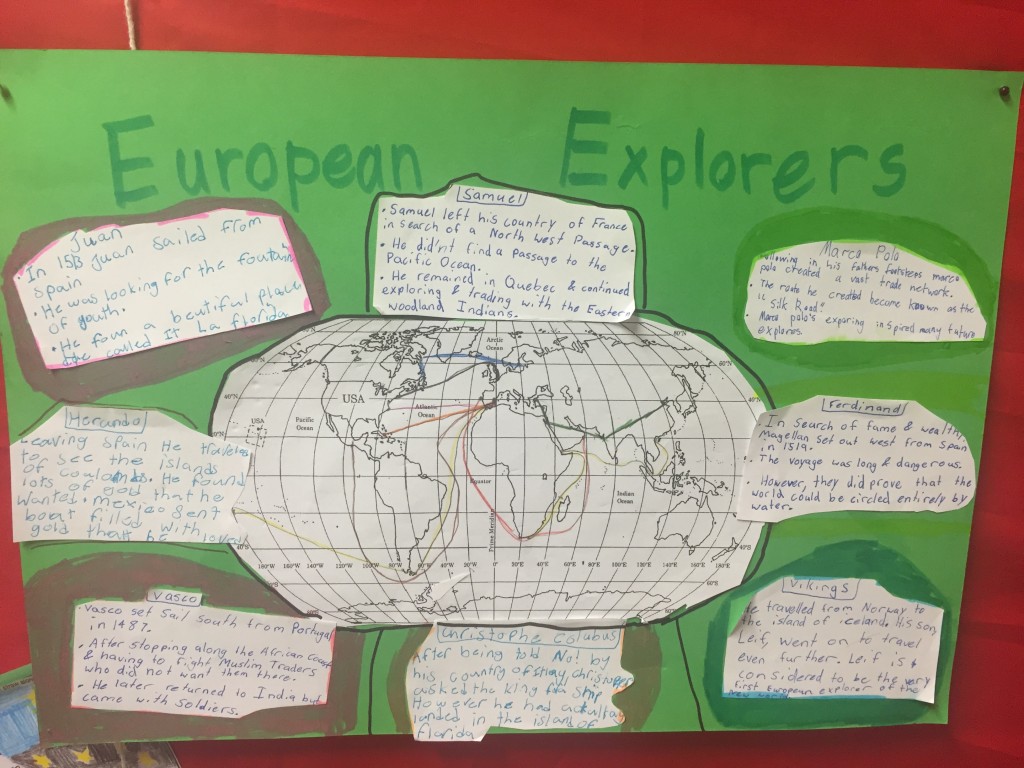 European Explorers
Juan
• In 1513 Juan sailed from
Spain
• He was looking for the fountain
of youth.
• He foun a beutiful place
called It La florida
Samuel
• Samuel left his country of France
in search of a North West Passage.
• He did'nt find a passage to the
Pacific Ocean.
• He remained in Quebec & continued
exploring & trading with the Eastern
woodland Indians.
Marco Polo
Following in his fathers footsteps marco
polo created a vast trade network.
• The route he created become known as the
"Silk Road"
• Marco polo's exporing inspired many future
explores.
Leaving Spain He
to see the islands
of He found
lots of gold that he
wanted. mexico sent
boat filled with
gold he loved
Ferdinand
In search of fame & wealth,
Magellan set out west from Spain
in 1519.
• The voyage was long & dangerous.
• However, they did prove that the
world could be circled entirely by
water.
Vasco
• Vasco set sail south from Portugal
in 1487.
• After stopping along the African Coast
& having to fight Muslim Traders
who did not want them there.
• He later returned to India but
came with soldiers.
Christophe Colubus
After being told No! by
his country of
asked the king for ship
However he had
landed in the island of
florida
Vikings
He travelled from Norway to
the island of iceland. His son,
Leif, went on to travel
even further. Leif is
considered to be the very
first European explorer of the
new world
Arctic
Ocean
USA
Atlantic
Ocean
Pacific
Ocean
USA
Equator
Prime Meridian
Indian
Ocean
180°W 160°W 140°W 120°W 100°W 80°W 60°W 40°W 20°W 0° 20°E 40°E 60°E 80°E 100°E 120°E 140°E 160°E 180°E